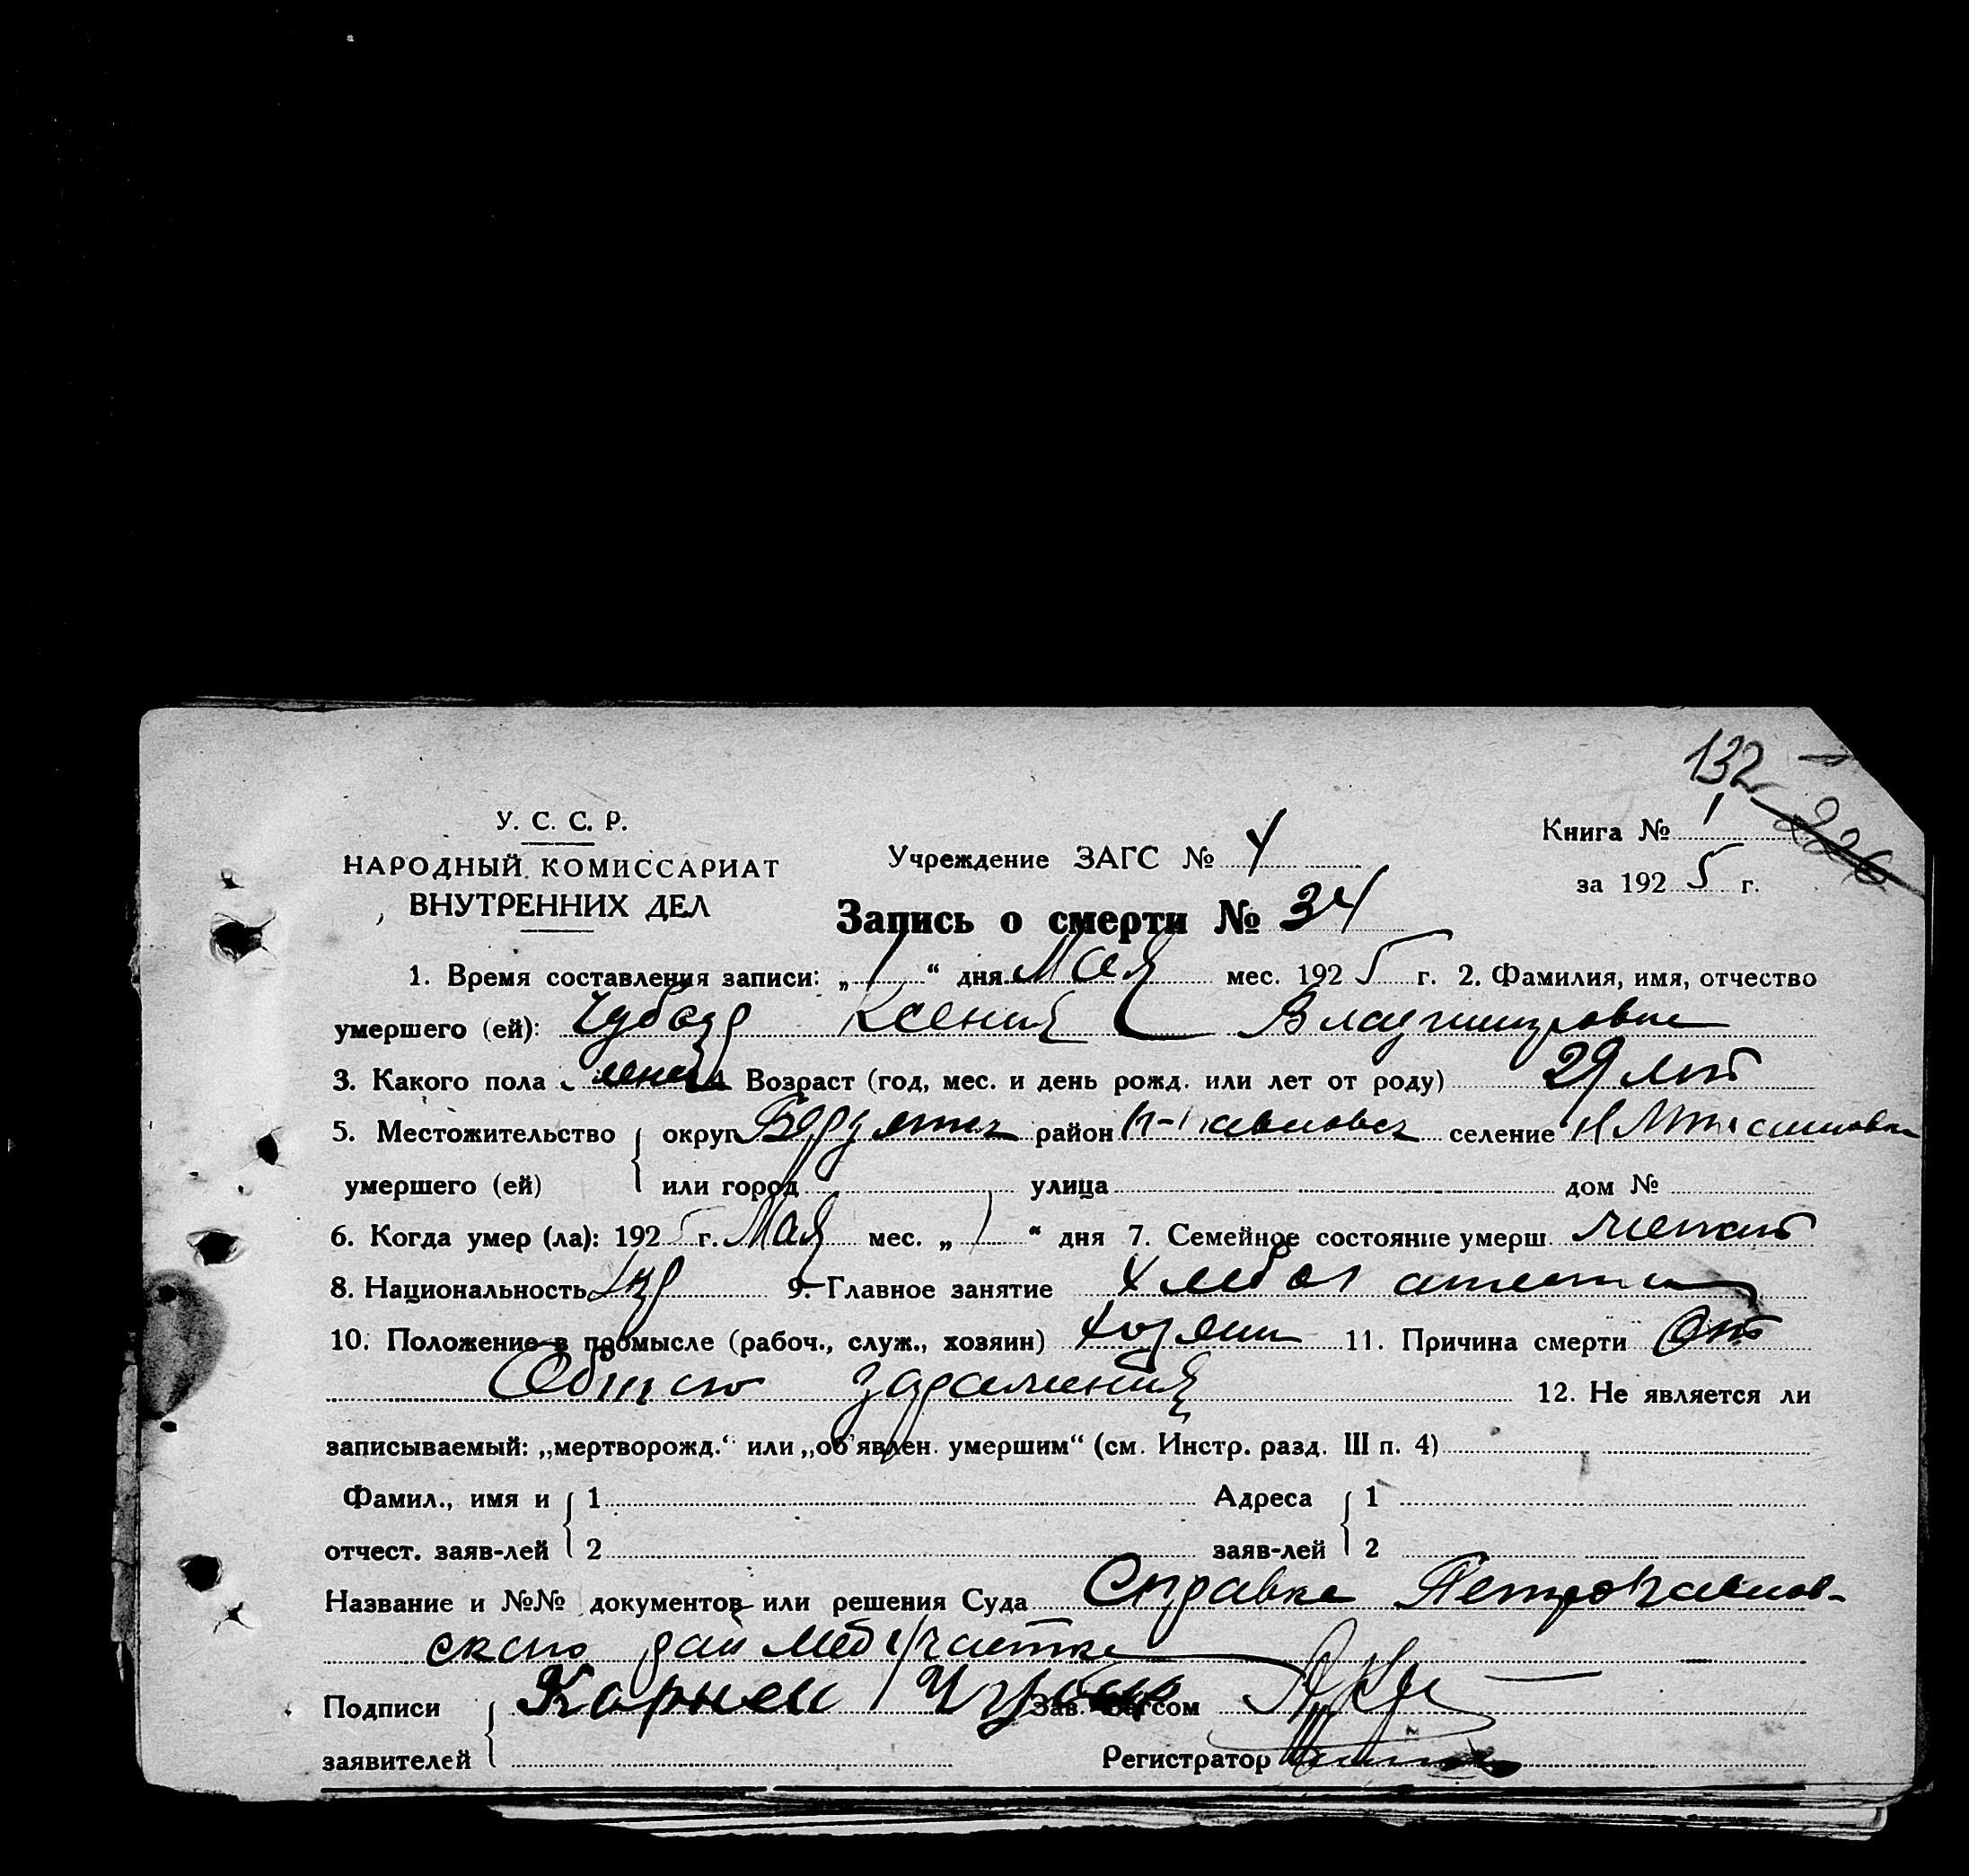 132
226
У. С. С. Р.
НАРОДНЫЙ КОМИССАРИАТ
ВНУТРЕННИХ ДЕЛ
Учреждение ЗАГС № 4
Книга № 1
за 1925 г.
Запись о смерти № 34
1. Время составления записи: „1“ дня Мая мес. 1925 г. 2. Фамилия, имя, отчество
умершего (ей): Ксения Владимировна
3. Какого пола женск 4. Возраст (год, мес. и день рожд. или лет от роду) 29 лет
5. Местожительство округ район П-Павловск селение
умершего (ей) или город улица дом №
6. Когда умер (ла): 1925 г. Мая мес. „1“ дня 7. Семейное состояние умерш.
8. Национальность Укр 9. Главное занятие
10. Положение в промысле (рабоч., служ., хозяин) 11. Причина смерти От
Общего заражения 12. Не является ли
записываемый: „мертворожд.“ или „об'явлен. умершим“ (см. Инстр. разд. III п. 4)
Фамил., имя и 1 Адреса 1
отчест. заяв-лей 2 заяв-лей 2
Название и №№ документов или решения Суда Справка Петропавлов-
ского рай медучастка
Подписи Корней Зав. Загсом
заявителей Регистратор